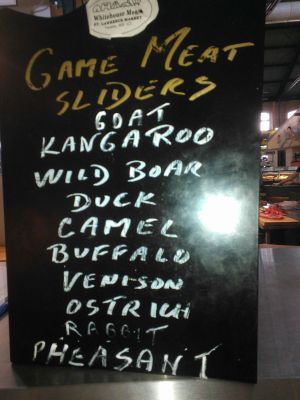 Whitehouse Meats
ST. LAWRENCE MARKET
GAME MEAT
SLIDERS
GOAT
KANGAROO
WILD BOAR
DUCK
CAMEL
BUFFALO
VENISON
OSTRICH
RABBIT
PHEASANT